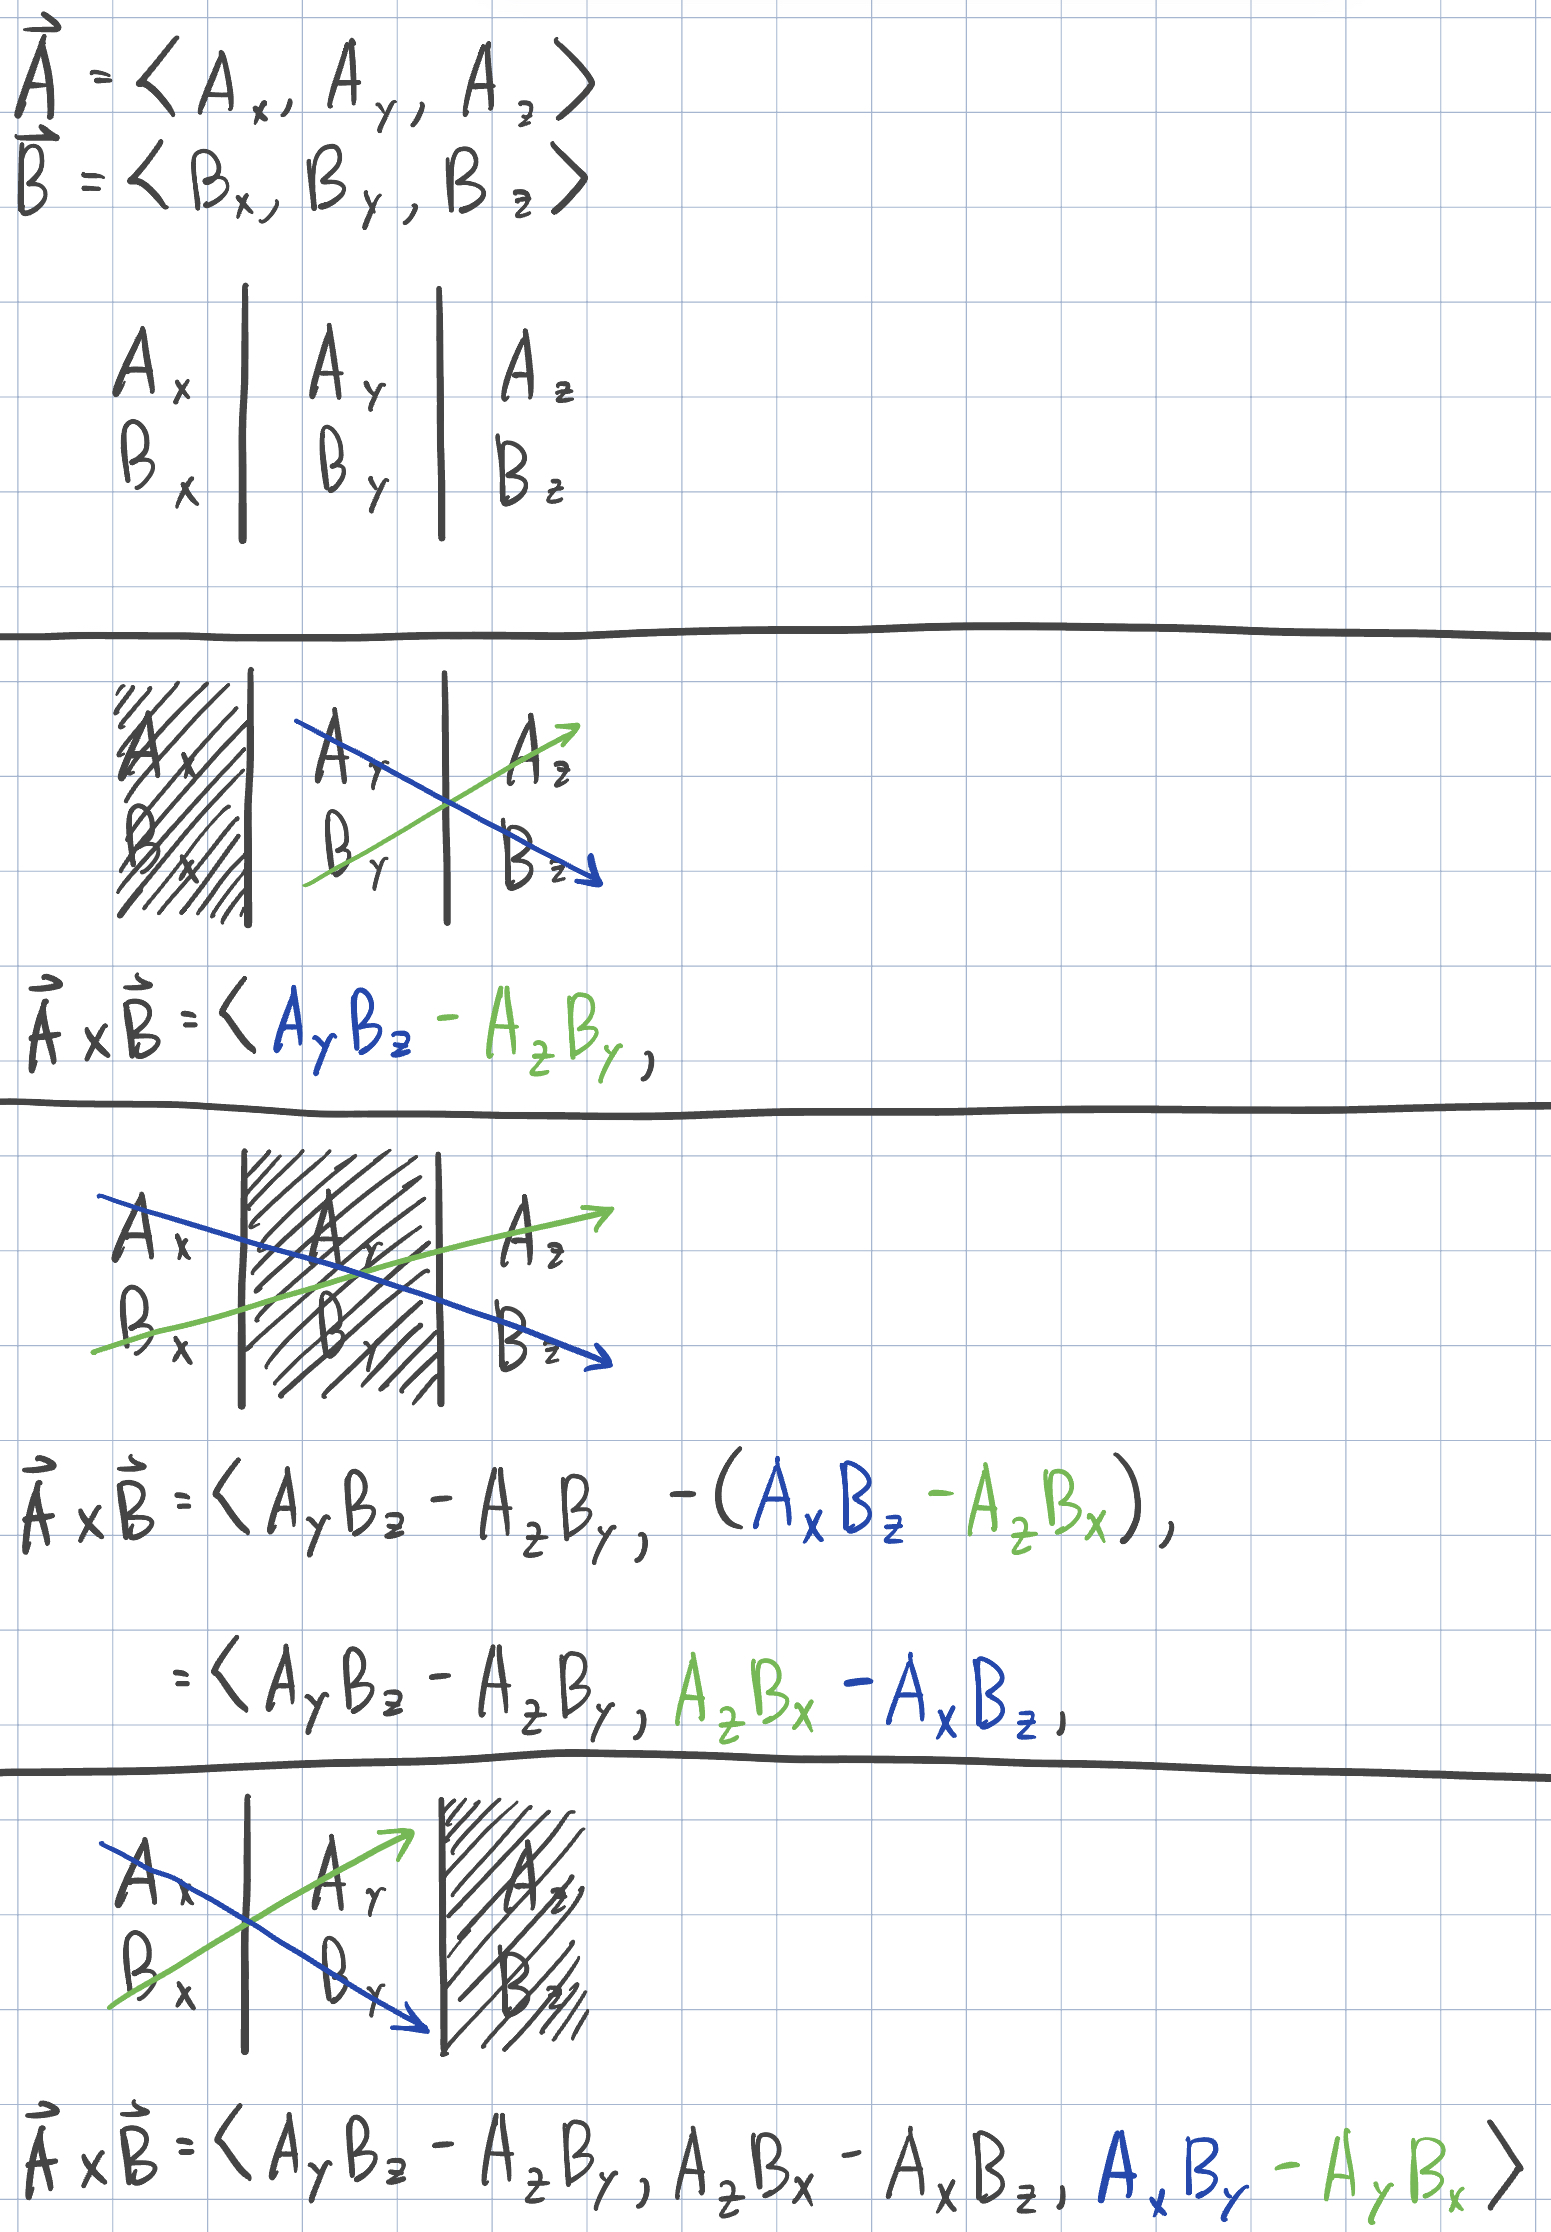 A⃗ = ⟨A_x, A_y, A_z⟩
B⃗ = ⟨B_x, B_y, B_z⟩
A_x | A_y | A_z
B_x | B_y | B_z
A_x | A_y | A_z
B_x | B_y | B_z
A⃗ × B⃗ = ⟨A_y B_z - A_z B_y,
A_x | A_y | A_z
B_x | B_y | B_z
A⃗ × B⃗ = ⟨A_y B_z - A_z B_y, -(A_x B_z - A_z B_x),
= ⟨A_y B_z - A_z B_y, A_z B_x - A_x B_z,
A_x | A_y | A_z
B_x | B_y | B_z
A⃗ × B⃗ = ⟨A_y B_z - A_z B_y, A_z B_x - A_x B_z, A_x B_y - A_y B_x⟩